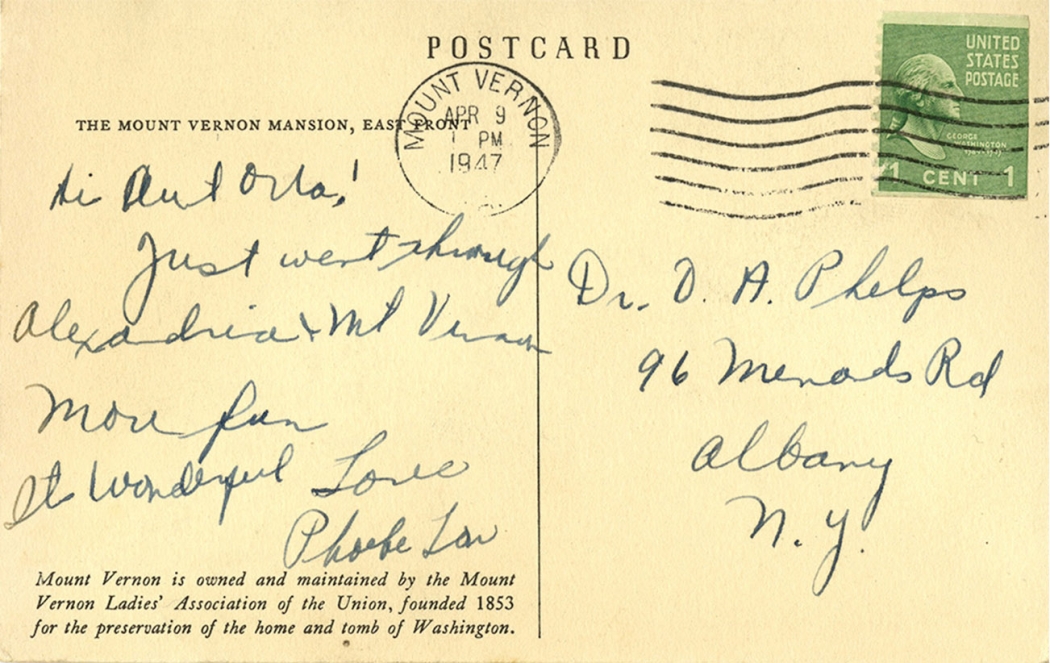 POSTCARD
THE MOUNT VERNON MANSION, EAST FRONT
MOUNT VERNON
APR 9
1 PM
1947
UNITED
STATES
POSTAGE
GEORGE
WASHINGTON
1 CENT 1
Hi Aunt Orla!
Just went through
Alexandria & Mt Vernon
More fun
Its Wonderful Love
Phoebe Lou
Dr. O. A. Phelps
96 Menands Rd
Albany
N. Y.
Mount Vernon is owned and maintained by the Mount
Vernon Ladies' Association of the Union, founded 1853
for the preservation of the home and tomb of Washington.